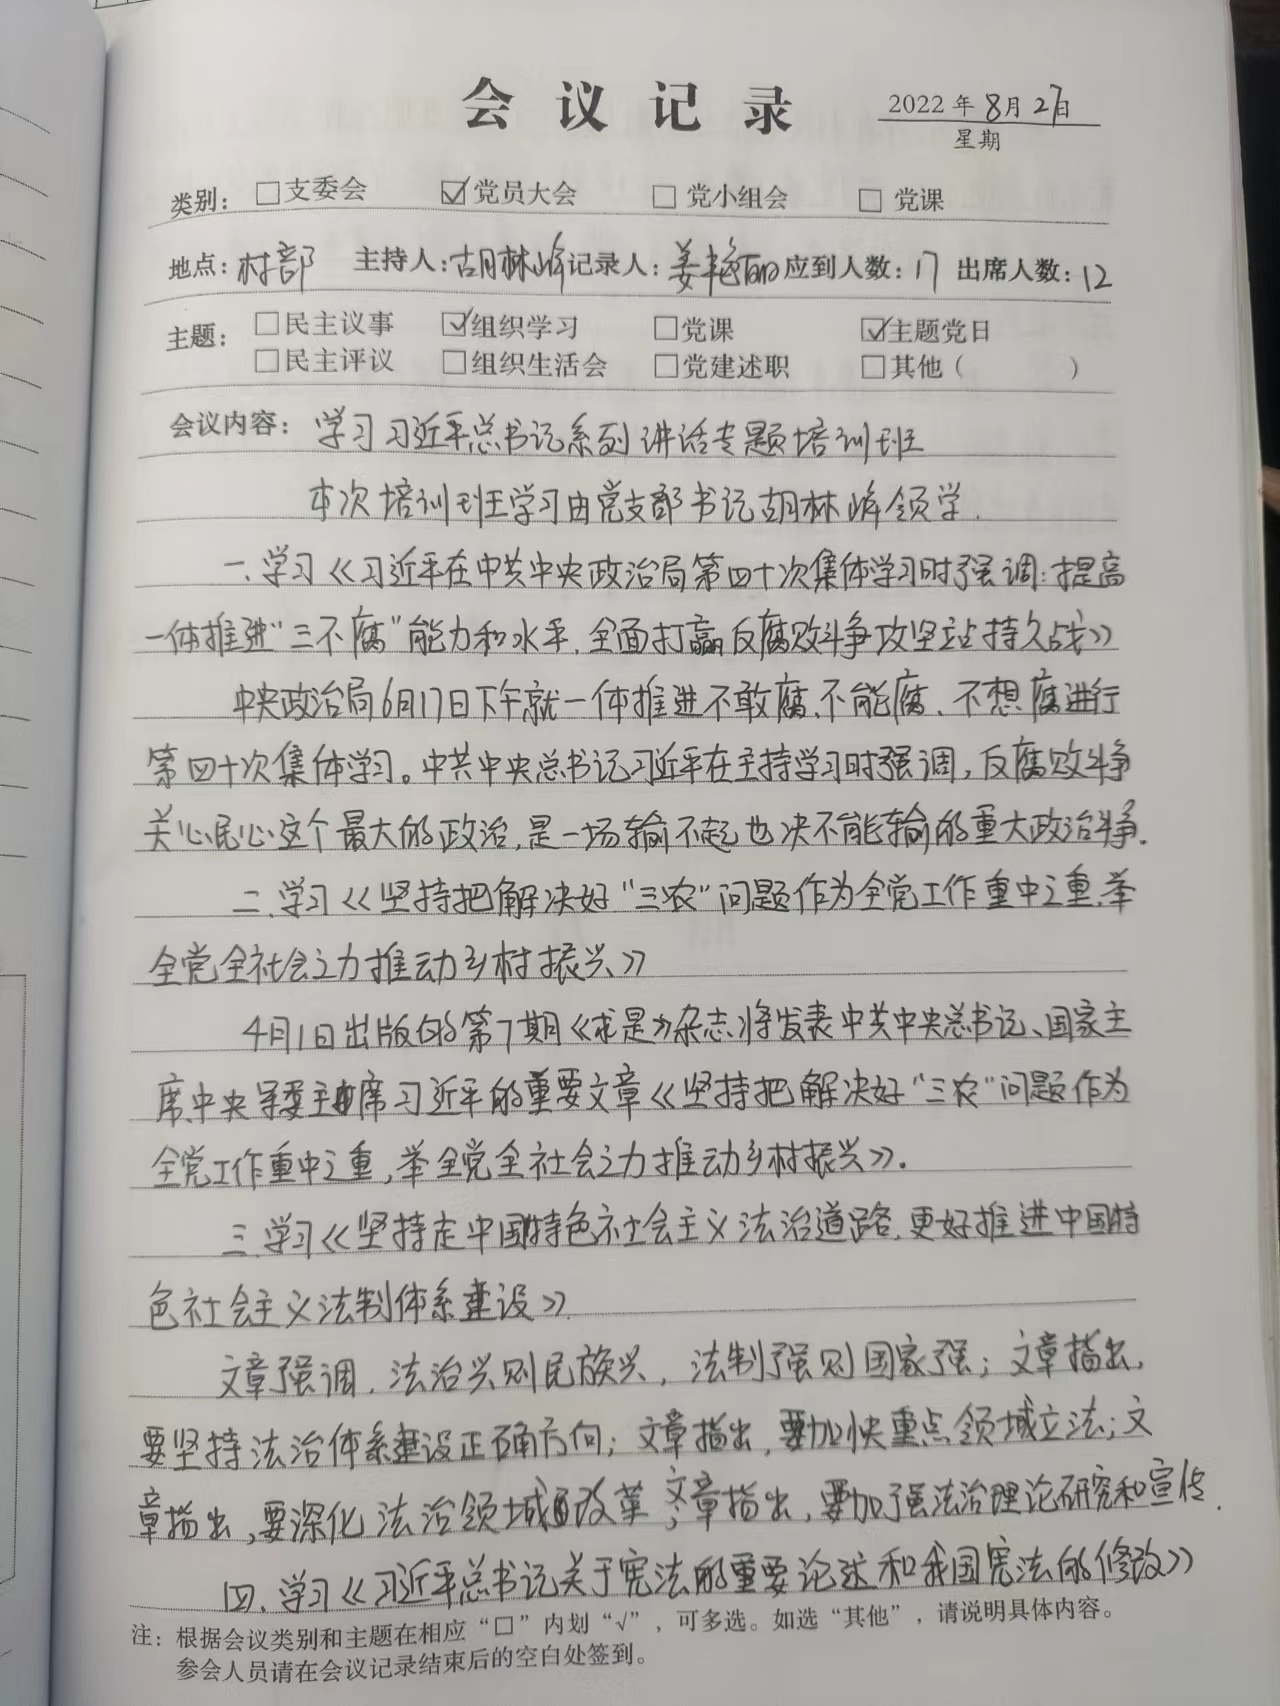 会议记录
2022年8月27日
星期
类别：□支委会 ☑党员大会 □党小组会 □党课
地点：村部 主持人：胡林峰 记录人：姜艳丽 应到人数：17 出席人数：12
主题：□民主议事 ☑组织学习 □党课 ☑主题党日
□民主评议 □组织生活会 □党建述职 □其他（ ）
会议内容：学习习近平总书记系列讲话专题培训班
本次培训班学习由党支部书记胡林峰领学.
一、学习《习近平在中共中央政治局第四十次集体学习时强调:提高
一体推进“三不腐”能力和水平,全面打赢反腐败斗争攻坚站持久战》
中央政治局6月17日下午就一体推进不敢腐、不能腐、不想腐进行
第四十次集体学习。中共中央总书记习近平在主持学习时强调,反腐败斗争
关心民心这个最大的政治,是一场输不起也决不能输的重大政治斗争.
二、学习《坚持把解决好“三农”问题作为全党工作重中之重,举
全党全社会之力推动乡村振兴》
4月1日出版的第7期《求是》杂志将发表中共中央总书记、国家主
席、中央军委主席习近平的重要文章《坚持把解决好“三农”问题作为
全党工作重中之重,举全党全社会之力推动乡村振兴》.
三、学习《坚持走中国特色社会主义法治道路,更好推进中国特
色社会主义法制体系建设》
文章强调,法治兴则民族兴,法制强则国家强;文章指出,
要坚持法治体系建设正确方向;文章指出,要加快重点领域立法;文
章指出,要深化法治领域改革;文章指出,要加强法治理论研究和宣传.
四、学习《习近平总书记关于宪法的重要论述和我国宪法的修改》
注：根据会议类别和主题在相应“□”内划“√”，可多选。如选“其他”，请说明具体内容。
参会人员请在会议记录结束后的空白处签到。